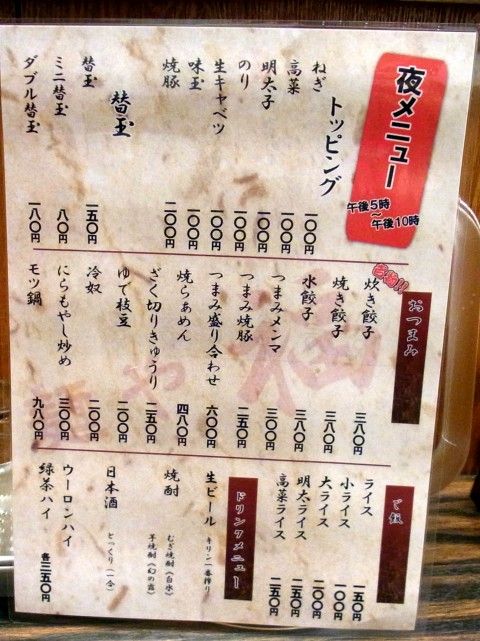 夜メニュー
午後5時～午後10時
トッピング
ねぎ 一〇〇円
高菜 一〇〇円
明太子 一〇〇円
のり 一〇〇円
生キャベツ 一〇〇円
味玉 一〇〇円
焼豚 二〇〇円
替玉
替玉 一五〇円
ミニ替玉 八〇円
ダブル替玉 一八〇円
おつまみ
炊き餃子 三八〇円
焼き餃子 三八〇円
水餃子 三八〇円
つまみメンマ 三〇〇円
つまみ焼豚 二五〇円
つまみ盛り合わせ 六〇〇円
焼らあめん 四八〇円
ざく切りきゅうり 二五〇円
ゆで枝豆 二〇〇円
冷奴 二〇〇円
にらもやし炒め 三〇〇円
モツ鍋 九八〇円
ご飯
ライス 一五〇円
小ライス 一〇〇円
大ライス 二〇〇円
明太ライス 二五〇円
高菜ライス 二五〇円
ドリンクメニュー
生ビール キリン一番搾り
焼酎 むぎ焼酎（白水）
芋焼酎（幻の露）
日本酒 とっくり（一合）
ウーロンハイ
緑茶ハイ 各三五〇円